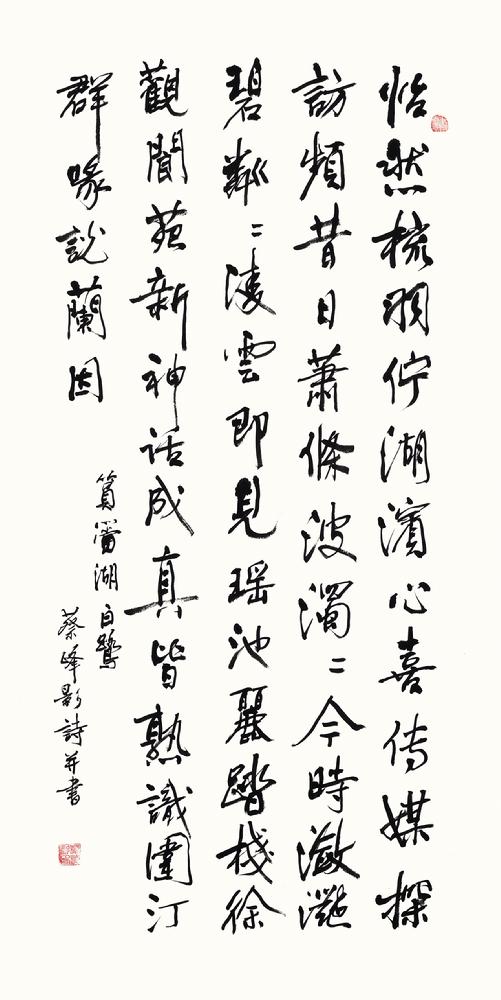 怡然梳羽佇湖濱心喜傳媒探
訪頻昔日蕭條波濁〻今時瀲灩
碧粼〻淩雲即見瑶池麗踏棧徐
觀閬苑新神話成真皆熟識圍汀
群喙說蘭因
篔簹湖白鷺
蔡峰影詩并書